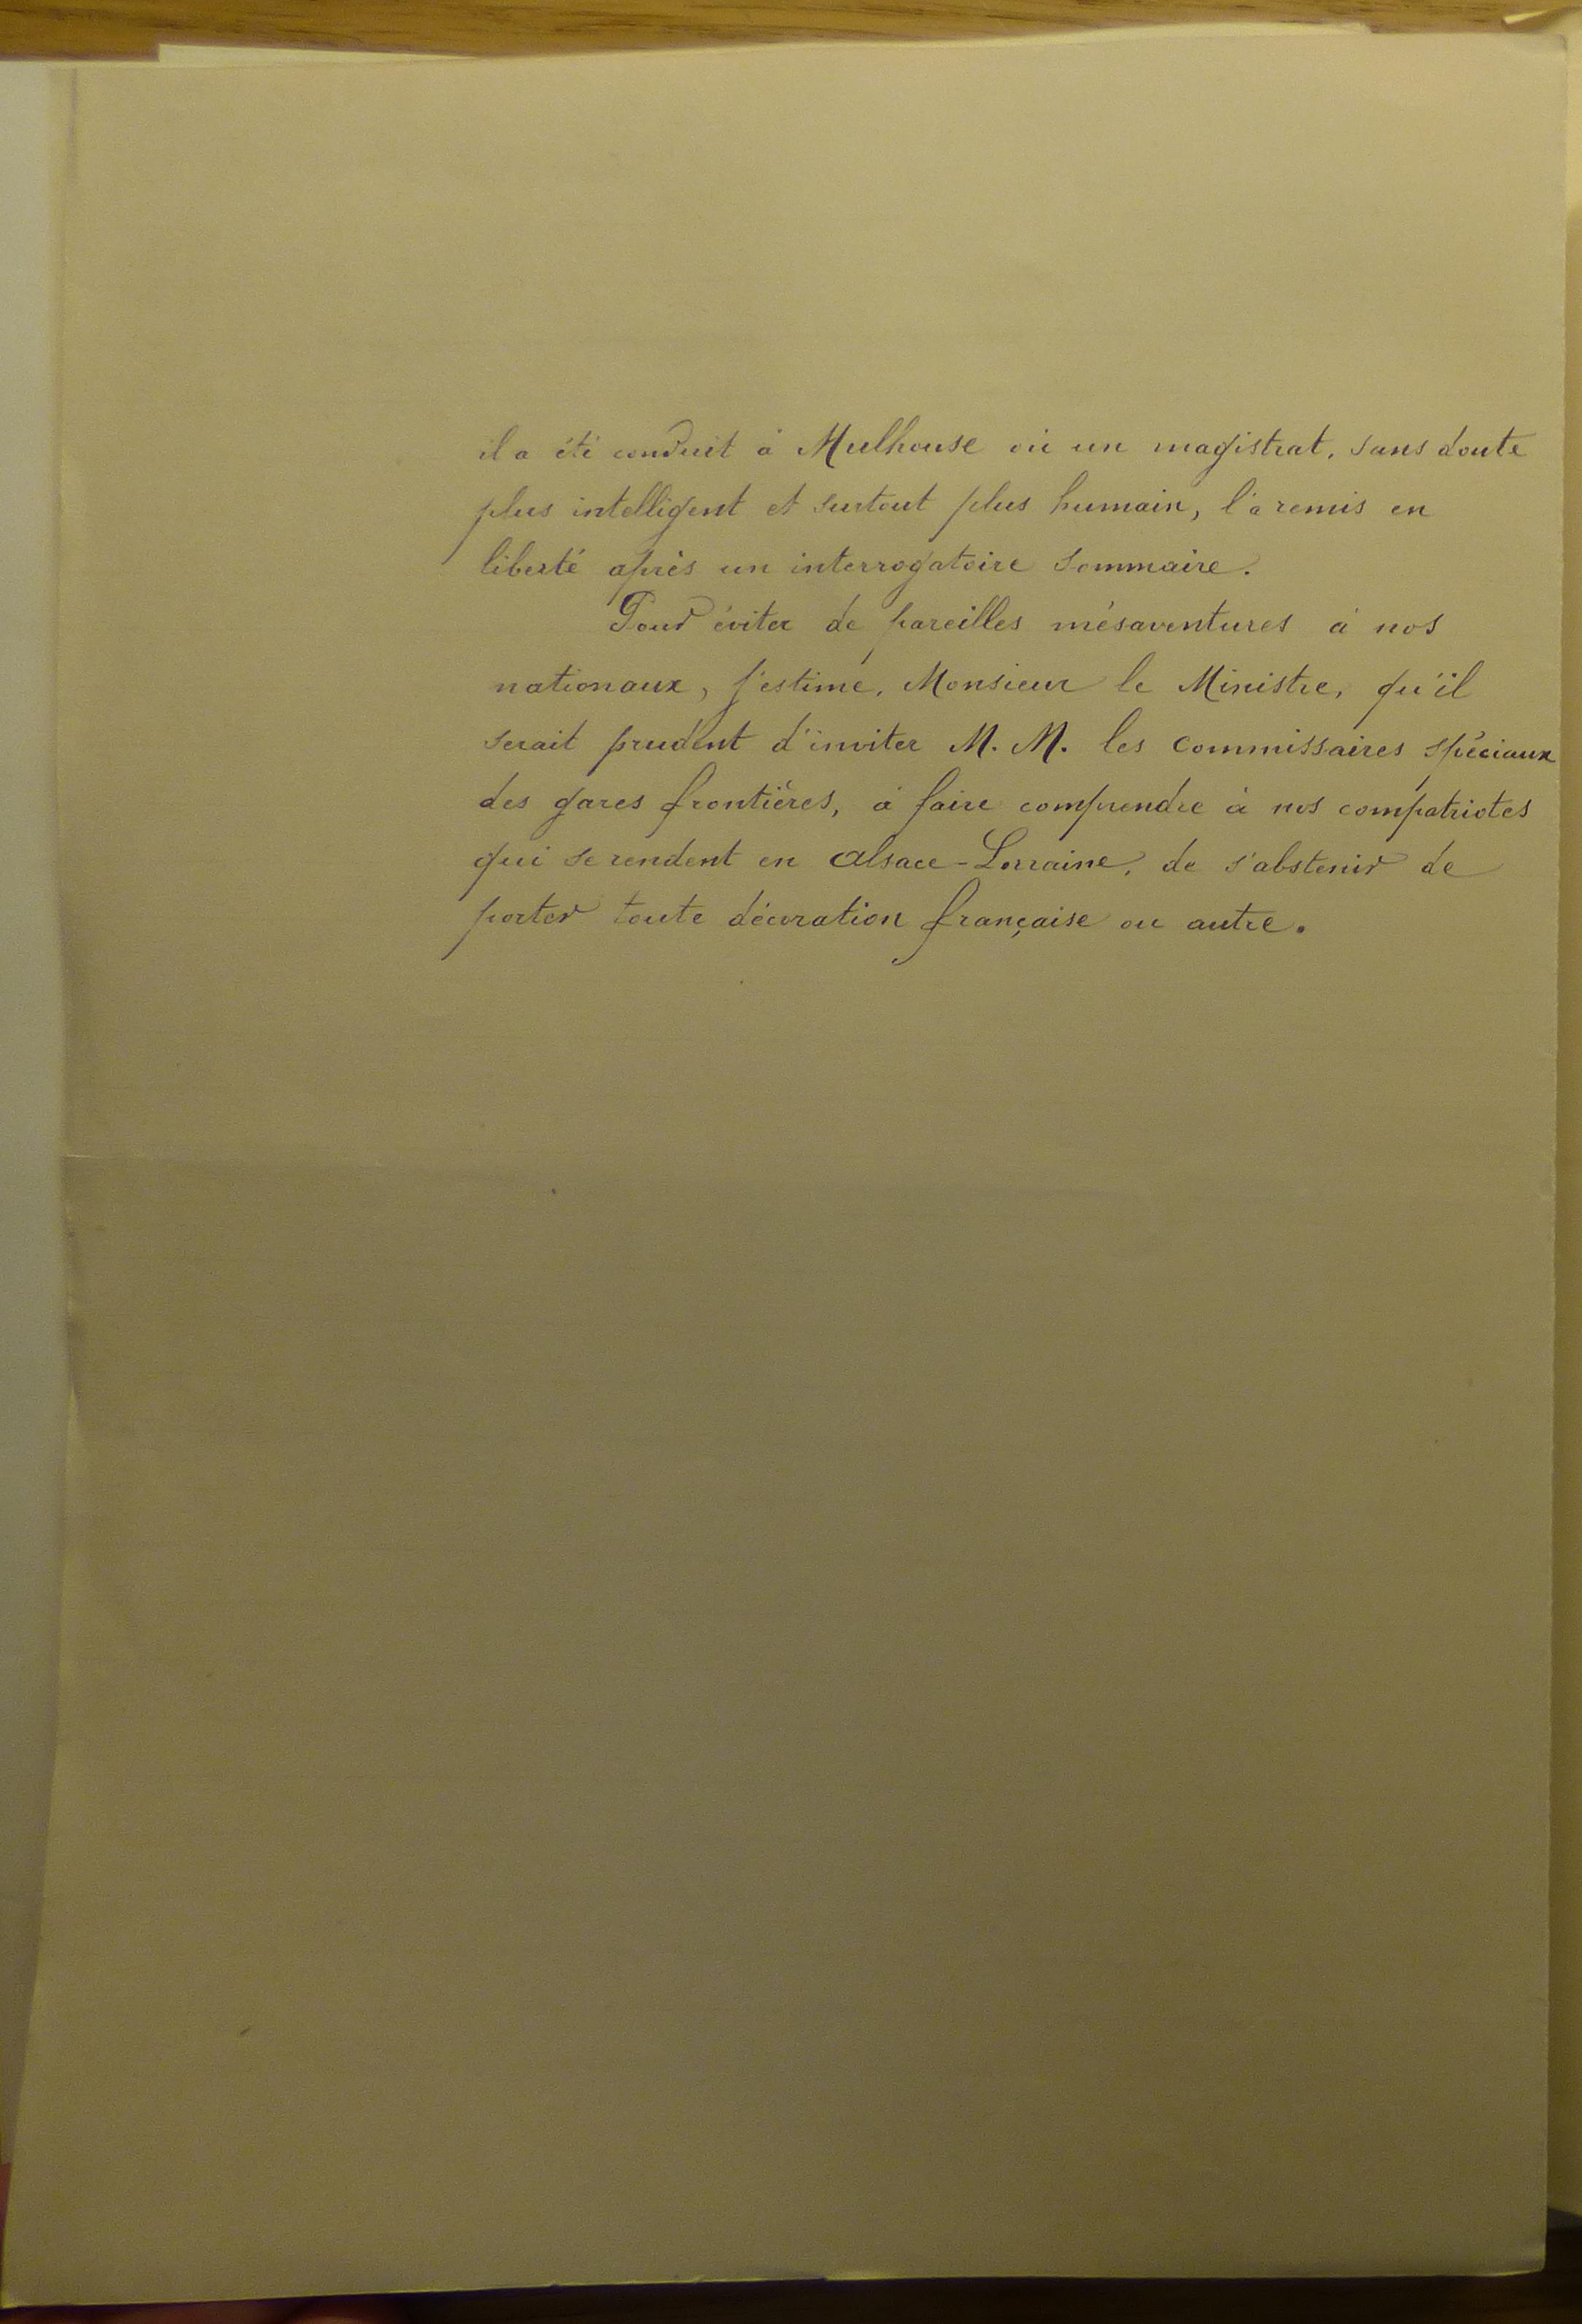 il a été conduit à Mulhouse où un magistrat, sans doute
plus intelligent et surtout plus humain, l'a remis en
liberté après un interrogatoire sommaire.
Pour éviter de pareilles mésaventures à nos
nationaux, j'estime, Monsieur le Ministre, qu'il
serait prudent d'inviter M. M. les commissaires spéciaux
des gares frontières, à faire comprendre à nos compatriotes
qui se rendent en Alsace-Lorraine, de s'abstenir de
porter toute décoration française ou autre.